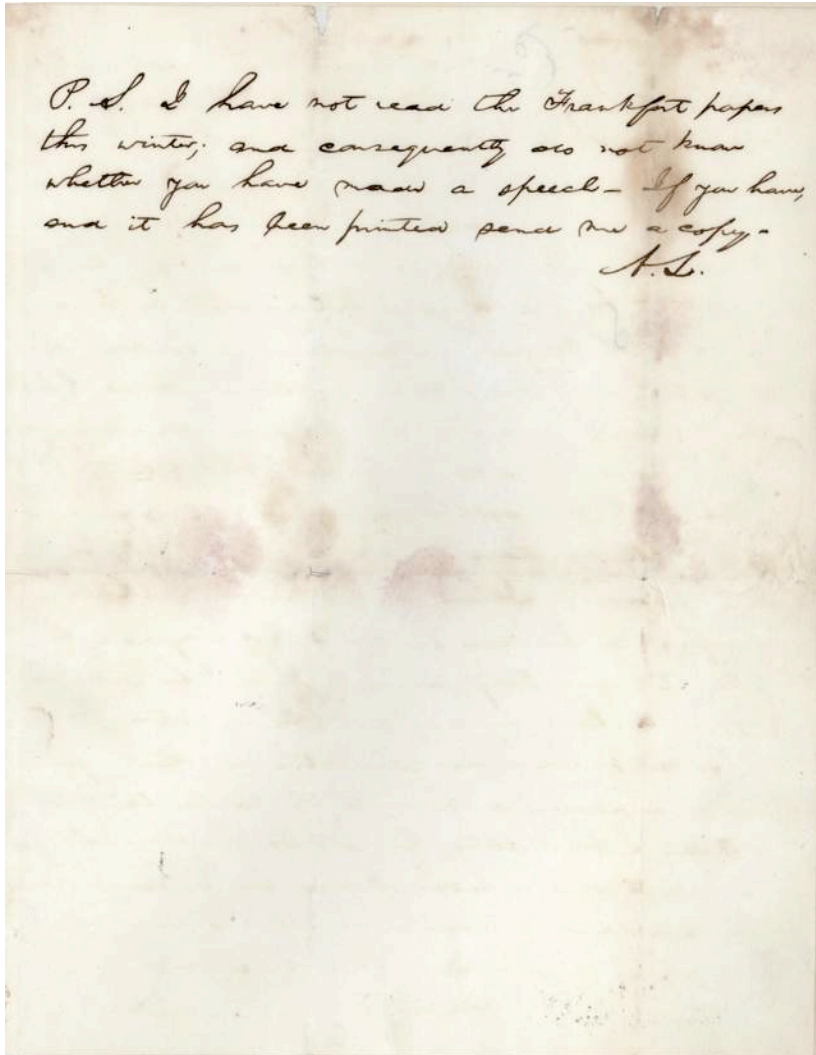 P. S. I have not read the Frankfort papers
this winter; and consequently do not know
whether you have made a speech – If you have,
and it has been printed send me a copy –
A. L.